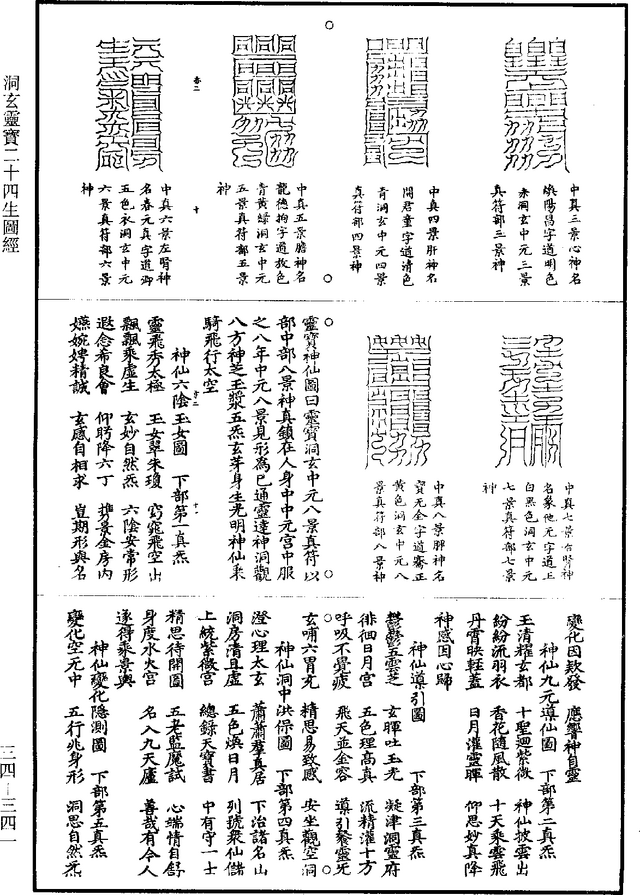 洞玄靈寶二十四生圖經
三四—三四一
中真三景心神名
煥陽昌字道明色
赤洞玄中元三景
真符部三景神
中真四景肝神名
開君童字道清色
青洞玄中元四景
真符部四景神
中真五景膽神名
龍德拘字道放色
青黃綠洞玄中元
五景真符部五景
神
卷二
十
中真六景左腎神
名春元真字道卿
五色衣洞玄中元
六景真符部六景
神
中真七景右腎神
名象他元字道王
白黑色洞玄中元
七景真符部七景
神
中真八景脾神名
寶元全字道騫正
黃色洞玄中元八
景真符部八景神
靈寶神仙圖曰靈寶洞玄中元八景真符以
部中部八景神真鎮在人身中中元宮中服
之八年中元八景見形為已通靈達神洞觀
八方神芝玉漿五炁玄芽身生光明神仙來
騎飛行太空
神仙六陰玉女圖 下部第一真炁
靈飛秀太極 玉女翠朱瓊 窈窕飛空出
飄飄乘虛生 玄妙自然炁 六陰安常形
遐念希良會 仰眄降六丁 攜景金房內
嬿婉娉精誠 玄感自相求 豈期形與名
變化因欻發 應響神自靈
神仙九元導仙圖 下部第二真炁
玉清耀玄都 十聖迴紫微 神仙披雲出
紛紛流羽衣 香花隨風散 十天乘雲飛
丹霄映輕蓋 日月灌靈暉 仰思妙真降
神感因心歸
神仙導引圖 下部第三真炁
鬱鬱五靈芝 玄暉吐玉光 凝津洞靈府
徘徊日月宮 五色理高真 流精灌十方
呼吸不覺疲 飛天並金容 導引餐靈炁
玄嘯六胃充 精思易致感 安坐觀空洞
神仙洞中洪保圖 下部第四真炁
澄心理太玄 蕭蕭羣真居 下治諸名山
洞房清且虛 五色煥日月 列號衆仙儲
上統紫微宮 總錄天寶書 中有守一士
精思待開圖 五老監魔試 心端情自舒
身度水火宮 名入九天廬 善哉有令人
遂得乘景輿
神仙變化隱測圖 下部第五真炁
變化空元中 五行兆身形 洞思自然炁